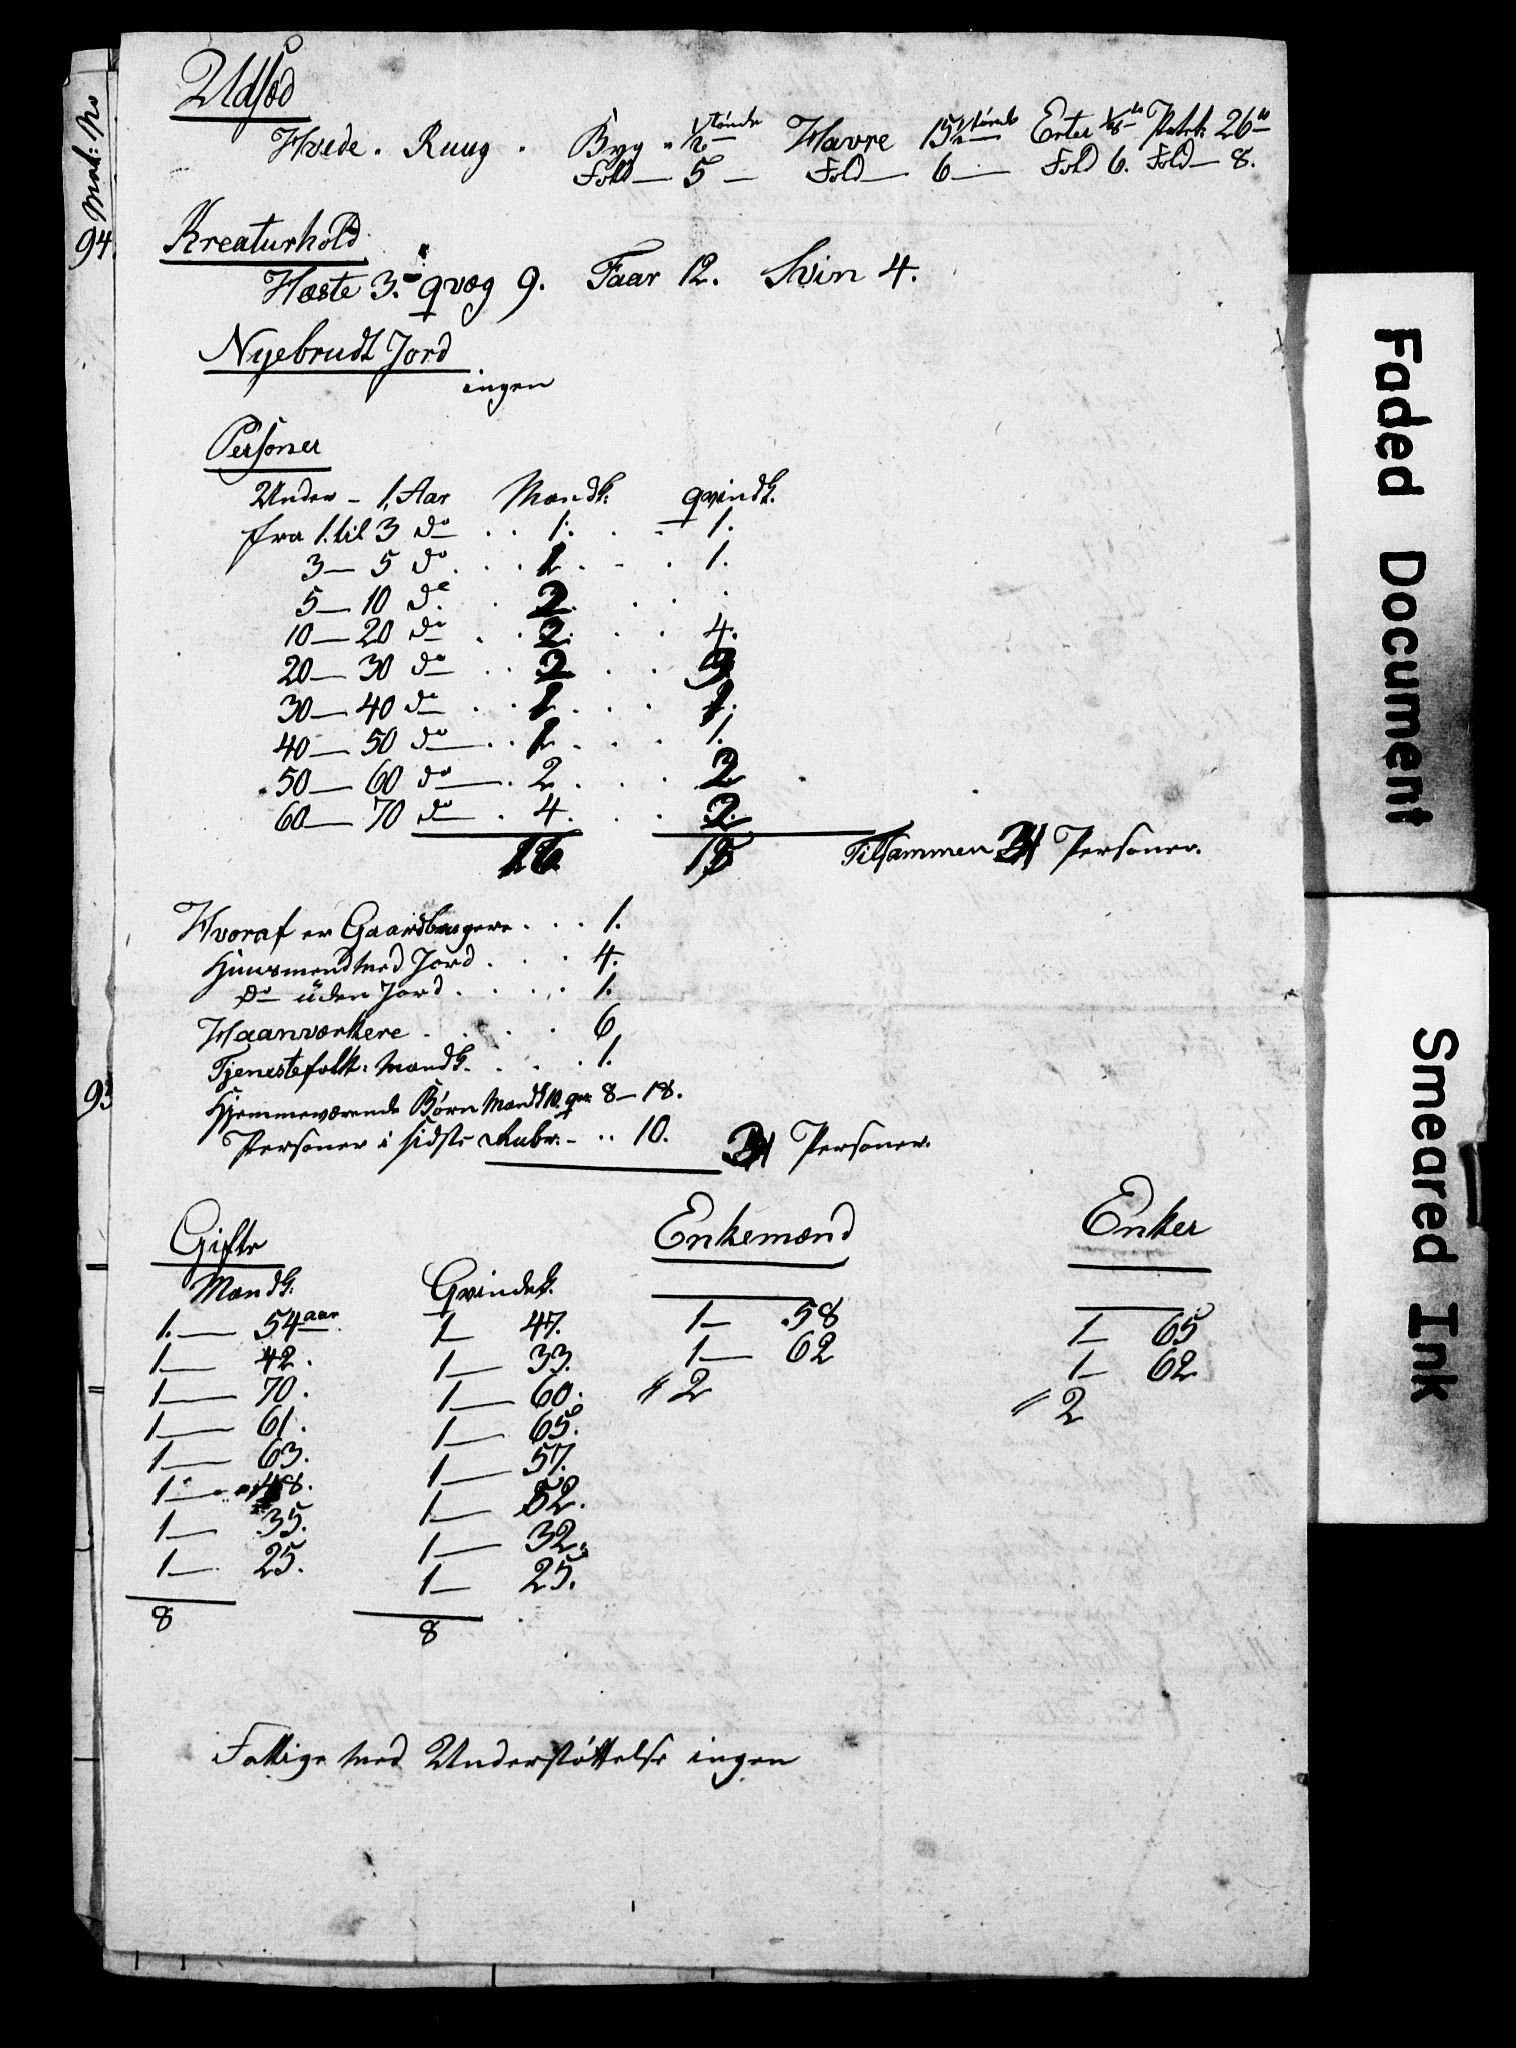 Udsæd
Hvede . Ruug . Byg " 1/2 tønde Havre 15 1/2 tønde Erter 1/8 do Potet: 26 do
Fold — 5 — Fold — 6 — Fold 6. Fold — 8.
Mat: No
94.
Kreaturhold
Hæste 3. qvæg 9. Faar 12. Svin 4.
Nyebrudt Jord
ingen
Personer
Under - 1, Aar Mandk: qvindk.
fra 1. til 3 do . . 1. . . 1.
3 — 5 do . . . 1 . . . 1.
5 — 10 do . . 2. . . .
10 — 20 do . . 2. . . 4.
20 — 30 do . . 2 . . 3
30 — 40 do . . 1 . . . 1.
40 — 50 do . . 1 . . . 1.
50 — 60 do . 2 . . . 2
60 — 70 do . 4. . . 2.
16 15 Tilsammen 31 Personer.
Hvoraf er Gaardbrugere . . . 1.
Huusmend med Jord . . . 4.
Do uden Jord . . . . 1.
Haanværkere . . . . 6
Tjenestefolk: Mandk. . . . 1.
93
Hjemmeværende Børn Mandk 10. qv: 8 — 18.
Personer i sidste Rubr: - .. 10. 31 Personer.
Gifte Enkemænd Enker
Mandk: Qvindek.
1. — 54 aar 1 — 47. 1 — 58 1 — 65
1 — 42. 1 — 33. 1 — 62 1 — 62
1 — 70. 1 — 60. " 2 " 2
1 — 61. 1 — 65.
1 — 63. 1 — 57.
1 — 48. 1 — 52.
1 — 35. 1 — 32.
1 — 25. 1 — 25.
8 8
Fattige med Understøttelse ingen
Faded Document
Smeared Ink